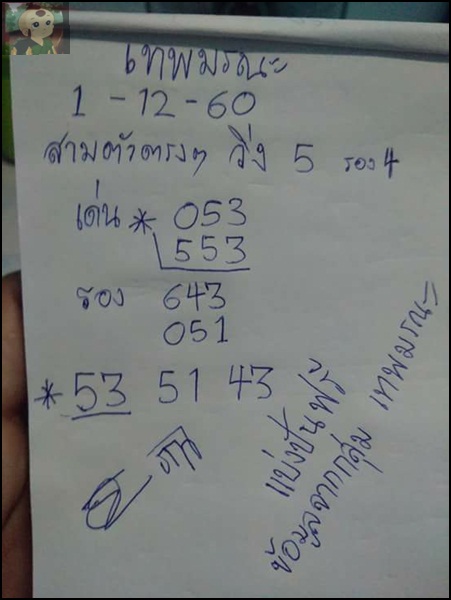 เทพมรณะ
1 - 12 - 60
สามตัวตรงๆ วิ่ง 5 รอง 4
เด่น * 053
553
รอง 643
051
* 53 51 43
แบ่งปันฟรี
ข้อมูลจากกลุ่ม เทพมรณะ